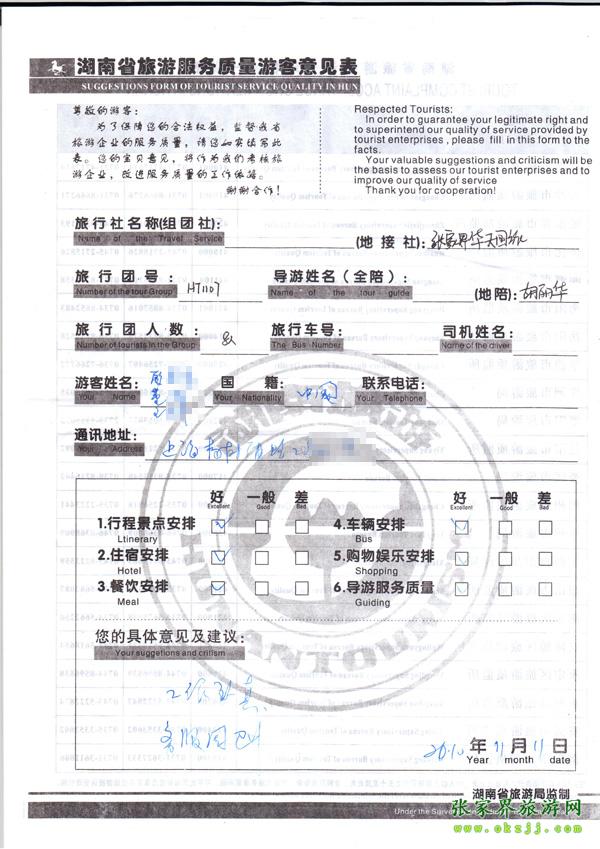 湖南省旅游服务质量游客意见表
SUGGESTIONS FORM OF TOURIST SERVICE QUALITY IN HUN
尊敬的游客：
为了保障您的合法权益，监督我省
旅游企业的服务质量，请您如实填写此
表。您的宝贝意见，将作为我们考核旅
游企业，改进服务质量的工作依据。
谢谢合作！
Respected Tourists:
In order to guarantee your legitimate right and
to superintend our quality of service provided by
tourist enterprises , please fill in this form to the
facts.
Your valuable suggestions and criticism will be
the basis to assess our tourist enterprises and to
improve our quality of service
Thank you for cooperation!
旅行社名称(组团社):
Name of the Travel Service
(地接社): 张家界华天国旅
旅行团号: HT1107 导游姓名(全陪): (地陪): 胡丽华
Number of the tour Group Name of the tour guide
旅行团人数: 旅行车号: 司机姓名:
Number of tourists in the Group The Bus Number Name of the driver
游客姓名: 国籍: 中国 联系电话:
Your Name Your Nationality Your Telephone
通讯地址: 上海
Your Address
好 一般 差 好 一般 差
Excellent Good Bad Excellent Good Bad
1.行程景点安排 4.车辆安排
Ltinerary Bus
2.住宿安排 5.购物娱乐安排
Hotel Shopping
3.餐饮安排 6.导游服务质量
Meal Guiding
HUNAN TOURISM
您的具体意见及建议:
Your suggetions and critism
工作认真
服务周到
2010年11月11日
Year month date
湖南省旅游局监制
张家界旅游网
www.okzjj.com